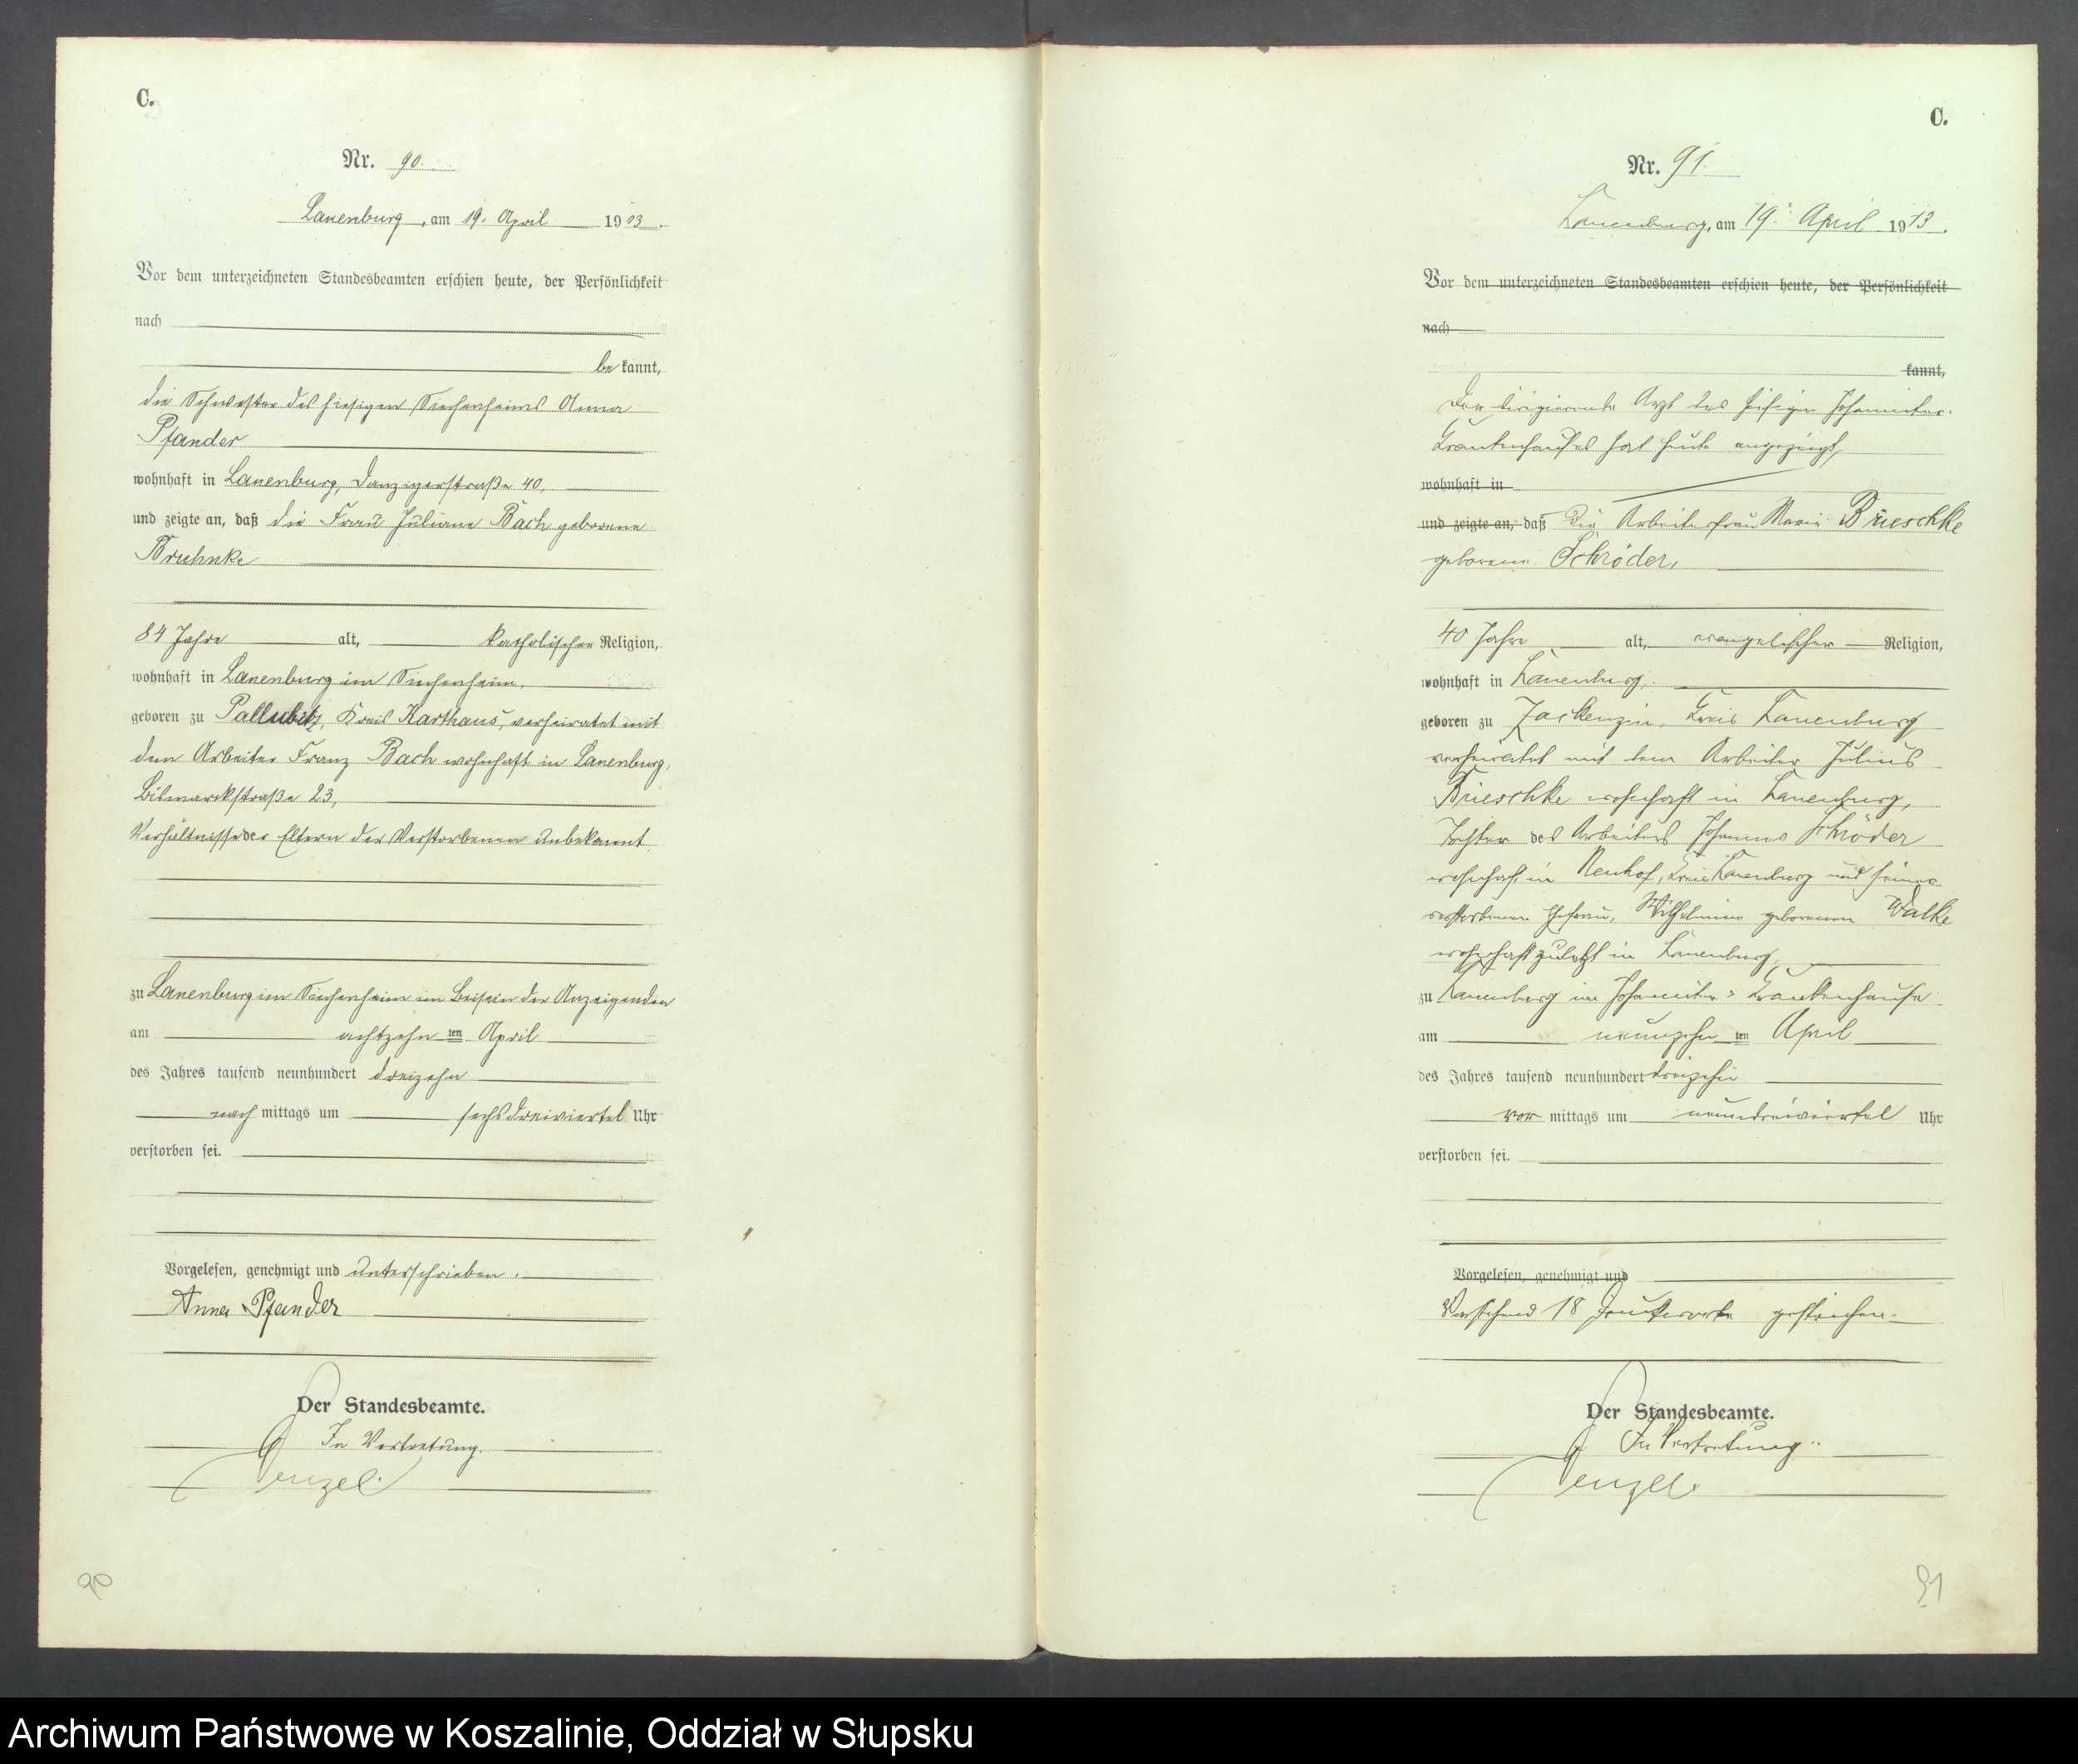 C.
Nr. 90.
Lauenburg, am 19. April 1913.
Vor dem unterzeichneten Standesbeamten erschien heute, der Persönlichkeit
nach
bekannt,
die Schwester des hiesigen Siechenheims Anna
Pfander
wohnhaft in Lauenburg, Danzigerstraße 40,
und zeigte an, daß die Frau Juliane Bach geborene
Bruhnke
84 Jahre alt, katholischer Religion,
wohnhaft in Lauenburg im Siechenheim,
geboren zu Pallubitz, Kreis Karthaus, verheiratet mit
dem Arbeiter Franz Bach wohnhaft in Lauenburg,
Bismarckstraße 23,
Verhältnisse der Eltern der Verstorbenen unbekannt
zu Lauenburg im Siechenheim im Beisein der Anzeigenden
am achtzehnten April
des Jahres tausend neunhundert dreizehn
nachmittags um sechsdreiviertel Uhr
verstorben sei.
Vorgelesen, genehmigt und unterschrieben.
Anna Pfander
Der Standesbeamte.
In Vertretung.
90
C.
Nr. 91.
Lauenburg, am 19. April 1913.
Vor dem unterzeichneten Standesbeamten erschien heute, der Persönlichkeit
nach
kannt,
Der dirigierende Arzt des hiesigen Johanniter-
Krankenhauses hat heute angezeigt,
wohnhaft in
und zeigte an, daß die Arbeiterfrau Marie Brieschke
geborene Schröder,
40 Jahre alt, evangelischer Religion,
wohnhaft in Lauenburg,
geboren zu Zackenzin, Kreis Lauenburg
verheiratet mit dem Arbeiter Julius
Brieschke wohnhaft in Lauenburg,
Tochter des Arbeiters Johannes Schröder
wohnhaft in Neuhof, Kreis Lauenburg und seiner
verstorbenen Ehefrau, Wilhelmine geborenen Walke
wohnhaft zuletzt in Lauenburg,
zu Lauenburg im Johanniter-Krankenhause
am neunzehnten April
des Jahres tausend neunhundert dreizehn
vormittags um neundreiviertel Uhr
verstorben sei.
Vorgelesen, genehmigt und
Vorstehend 18 Druckworte gestrichen.
Der Standesbeamte.
In Vertretung.
91
Archiwum Państwowe w Koszalinie, Oddział w Słupsku